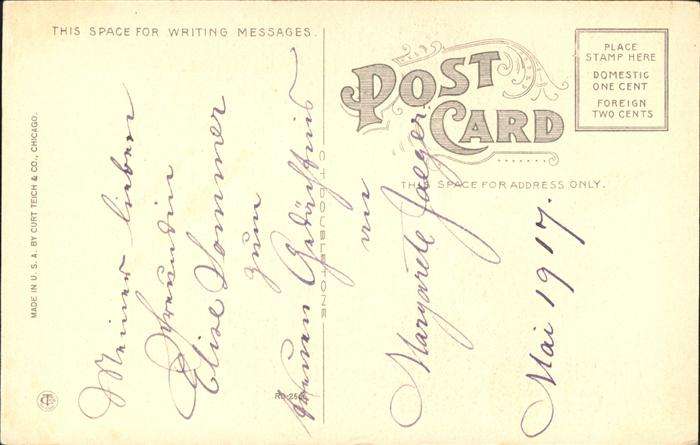 THIS SPACE FOR WRITING MESSAGES.
POST CARD
PLACE
STAMP HERE
DOMESTIC
ONE CENT
FOREIGN
TWO CENTS
THIS SPACE FOR ADDRESS ONLY.
MADE IN U. S. A. BY CURT TEICH & CO., CHICAGO.
C. T. DOUBLETONE
Meiner lieben
Freundin
Elise Sommer
zum
Gedächtnis
von
Margarete Jaeger
Mai 1917.